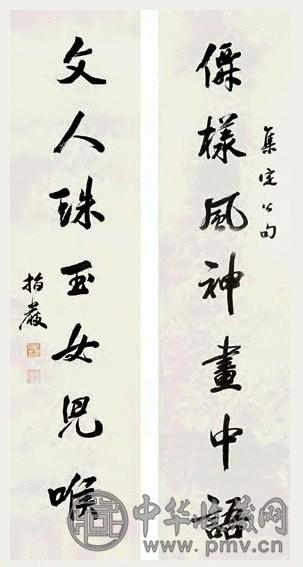 僊樣風神畫中語
集定公句
文人珠玉女兒喉
指嚴
中华收藏网
www.pmv.cn